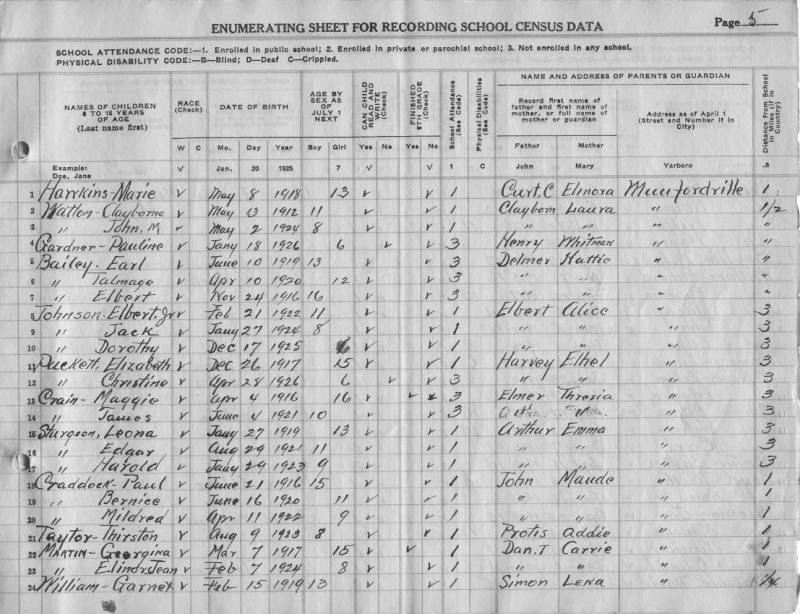 ENUMERATING SHEET FOR RECORDING SCHOOL CENSUS DATA Page 5
SCHOOL ATTENDANCE CODE:—1. Enrolled in public school; 2. Enrolled in private or parochial school; 3. Not enrolled in any school.
PHYSICAL DISABILITY CODE:—B—Blind; D—Deaf C—Crippled.
NAMES OF CHILDREN 6 TO 18 YEARS OF AGE (Last name first) RACE (Check) DATE OF BIRTH AGE BY SEX AS OF JULY 1 NEXT CAN CHILD READ AND WRITE (Check) FINISHED 8TH GRADE (Check) School Attendance (See Code) Physical Disabilities (See Code) NAME AND ADDRESS OF PARENTS OR GUARDIAN Distance from School in Miles (if in Country)
Record first name of father and first name of mother, or full name of mother or guardian Address as of April 1 (Street and Number if in City)
W C Mo. Day Year Boy Girl Yes No Yes No Father Mother
Example: Doe, Jane V Jan. 20 1925 7 V V 1 C John Mary Yarboro .5
1 Hawkins-Marie v May 8 1918 13 v v 1 Curt.C Elinora Munfordville 1
2 Watton-Clayborne v May 13 1912 11 v v 1 Clayborn Laura " 1/2
3 " John, M v May 2 1924 8 v v 1 " " " "
4 Gardner-Pauline v Jany 18 1926 6 v v 3 Henry Whitman " "
5 Bailey. Earl v June 10 1919 13 v v 3 Delmer Hattie " "
6 " Talmage v Apr 10 1920 12 v v 3 " " " "
7 " Elbert v Nov 24 1916 16 v v 3 " " " "
8 Johnson-Elbert, Jr v Feb 21 1922 11 v v 1 Elbert Alice " 3
9 " Jack v Jany 27 1924 8 v v 1 " " " 3
10 " Dorothy v Dec 17 1925 6 v v 1 " " " 3
11 Puckett, Elizabeth v Dec 26 1917 15 v v 1 Harvey Ethel " 3
12 " Christine v Apr 28 1926 6 v v 3 " " " 3
13 Crain-Maggie v Apr 4 1916 16 v v 3 Elmer Thresia " 3
14 " James v June 4 1921 10 v v 3 " 3
15 Sturgeon, Leona v Jany 27 1919 13 v v 1 Arthur Emma " 3
16 " Edgar v Aug 29 1921 11 v v 1 " " " 3
17 " Harold v Jany 29 1923 9 v v 1 " " " 3
18 Craddock-Paul v June 21 1916 15 v v 1 John Maude " 1
19 " Bernice v June 16 1920 11 v v 1 " " " 1
20 " Mildred v Apr 11 1922 9 v v 1 " " " 1
21 Taylor-Thirston v Aug 9 1923 8 v v 1 Protis Addie " 1
22 Martin-Georgina v Mar 7 1917 15 v v 1 Dan.T Carrie " 1
23 " Elindr Jean v Feb 7 1924 8 v v 1 " " " 1
24 William-Garnet v Feb 15 1919 13 v v 1 Simon Lena " 1/4